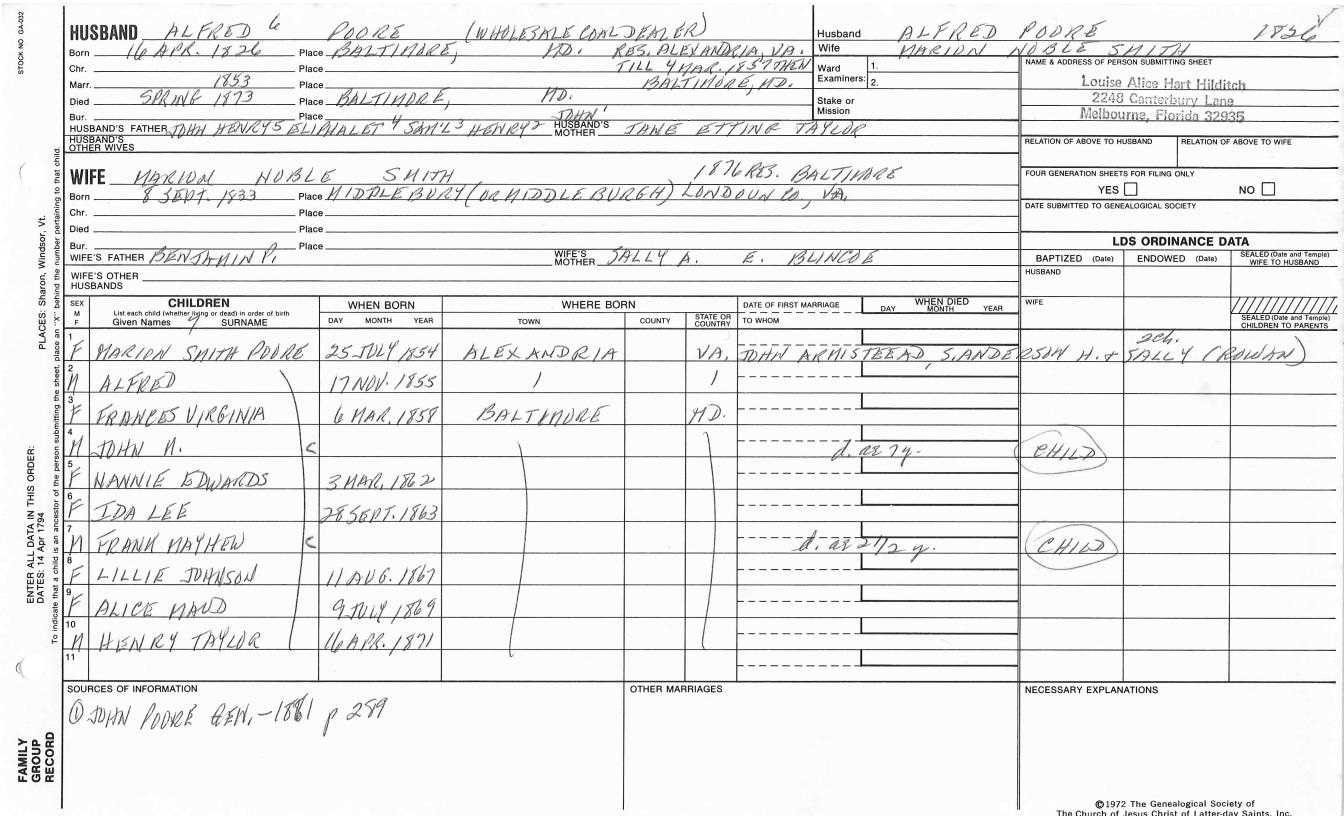 STOCK NO. GA-032
ENTER ALL DATA IN THIS ORDER:
DATES: 14 Apr 1794
PLACES: Sharon, Windsor, Vt.
To indicate that a child is an ancestor of the person submitting the sheet, place an "X" behind the number pertaining to that child.
FAMILY
GROUP
RECORD
HUSBAND ALFRED 6 POORE (WHOLESALE COAL DEALER)
Born 16 APR. 1826 Place BALTIMORE, MD. RES. ALEXANDRIA, VA.
Chr. Place TILL 4 MAR. 1857 THEN
Marr. 1853 Place BALTIMORE, MD.
Died SPRING 1873 Place BALTIMORE, MD.
Bur. Place JOHN 1
HUSBAND'S FATHER JOHN HENRY 5 ELIPHALET 4 SAM'L 3 HENRY 2 HUSBAND'S MOTHER JANE ETTING TAYLOR
HUSBAND'S OTHER WIVES
WIFE MARION NOBLE SMITH 1876 RES. BALTIMORE
Born 8 SEPT. 1833 Place MIDDLEBURY (OR MIDDLEBURGH) LONDOUN CO., VA.
Chr. Place
Died Place
Bur. Place
WIFE'S FATHER BENJAMIN P. WIFE'S MOTHER SALLY A. E. BLINCOE
WIFE'S OTHER HUSBANDS
Husband ALFRED POORE 1826
Wife MARION NOBLE SMITH
Ward Examiners: 1.
2.
Stake or Mission
NAME & ADDRESS OF PERSON SUBMITTING SHEET
Louise Alice Hart Hilditch
2248 Canterbury Lane
Melbourne, Florida 32935
RELATION OF ABOVE TO HUSBAND RELATION OF ABOVE TO WIFE
FOUR GENERATION SHEETS FOR FILING ONLY
YES NO
DATE SUBMITTED TO GENEALOGICAL SOCIETY
LDS ORDINANCE DATA
BAPTIZED (Date) ENDOWED (Date) SEALED (Date and Temple) WIFE TO HUSBAND
HUSBAND
WIFE
SEALED (Date and Temple) CHILDREN TO PARENTS
SEX M F CHILDREN WHEN BORN WHERE BORN DATE OF FIRST MARRIAGE WHEN DIED
List each child (whether living or dead) in order of birth
Given Names 7 SURNAME DAY MONTH YEAR TOWN COUNTY STATE OR COUNTRY TO WHOM DAY MONTH YEAR
1 F MARION SMITH POORE 25 JULY 1854 ALEXANDRIA VA. JOHN ARMISTEEAD, S. ANDERSON H. + SALLY (ROWAN) 2ch.
2 M ALFRED 17 NOV. 1855
3 F FRANCES VIRGINIA 6 MAR. 1858 BALTIMORE MD.
4 M JOHN N. C d. ae 7y. CHILD
5 F NANNIE EDWARDS 3 MAR. 1862
6 F IDA LEE 28 SEPT. 1863
7 M FRANK MAYHEW C d. ae 2 1/2 y. CHILD
8 F LILLIE JOHNSON 11 AUG. 1867
9 F ALICE MAUD 9 JULY 1869
10 M HENRY TAYLOR 16 APR. 1871
11
SOURCES OF INFORMATION
① JOHN POORE GEN. - 1881 p 289
OTHER MARRIAGES
NECESSARY EXPLANATIONS
©1972 The Genealogical Society of
The Church of Jesus Christ of Latter-day Saints, Inc.